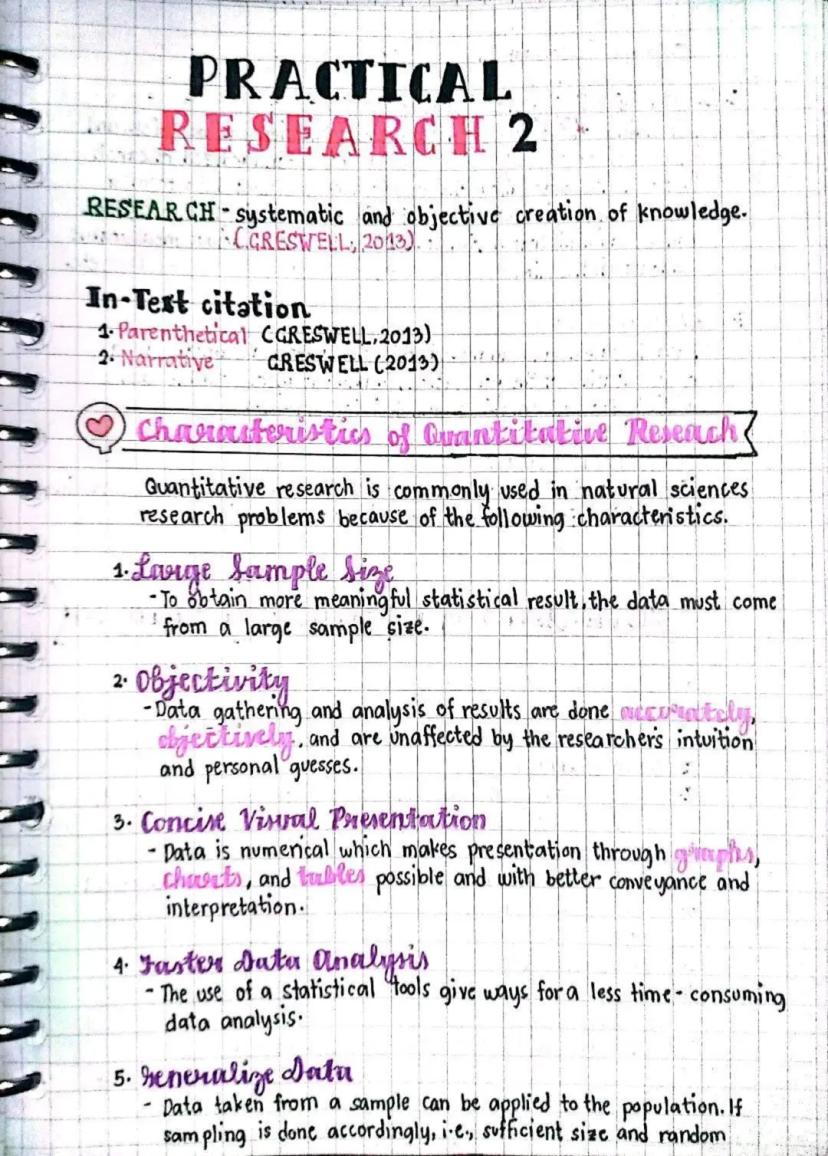 PRACTICAL
RESEARCH 2
RESEARCH - systematic and objective creation of knowledge.
(GRESWELL, 2013)
In-Text citation
1. Parenthetical (GRESWELL, 2013)
2. Narrative GRESWELL (2013)
Characteristics of Quantitative Reseach
Quantitative research is commonly used in natural sciences
research problems because of the following characteristics.
1. Large Sample Size
- To obtain more meaningful statistical result, the data must come
from a large sample size.
2. Objectivity
- Data gathering and analysis of results are done accurately,
objectively, and are unaffected by the researcher's intuition
and personal guesses.
3. Concise Visual Presentation
- Data is numerical which makes presentation through graphs,
charts, and tables possible and with better conveyance and
interpretation.
4. Faster Data Analysis
- The use of a statistical tools give ways for a less time-consuming
data analysis.
5. Generalize Data
- Data taken from a sample can be applied to the population. If
sampling is done accordingly, i.e., sufficient size and random